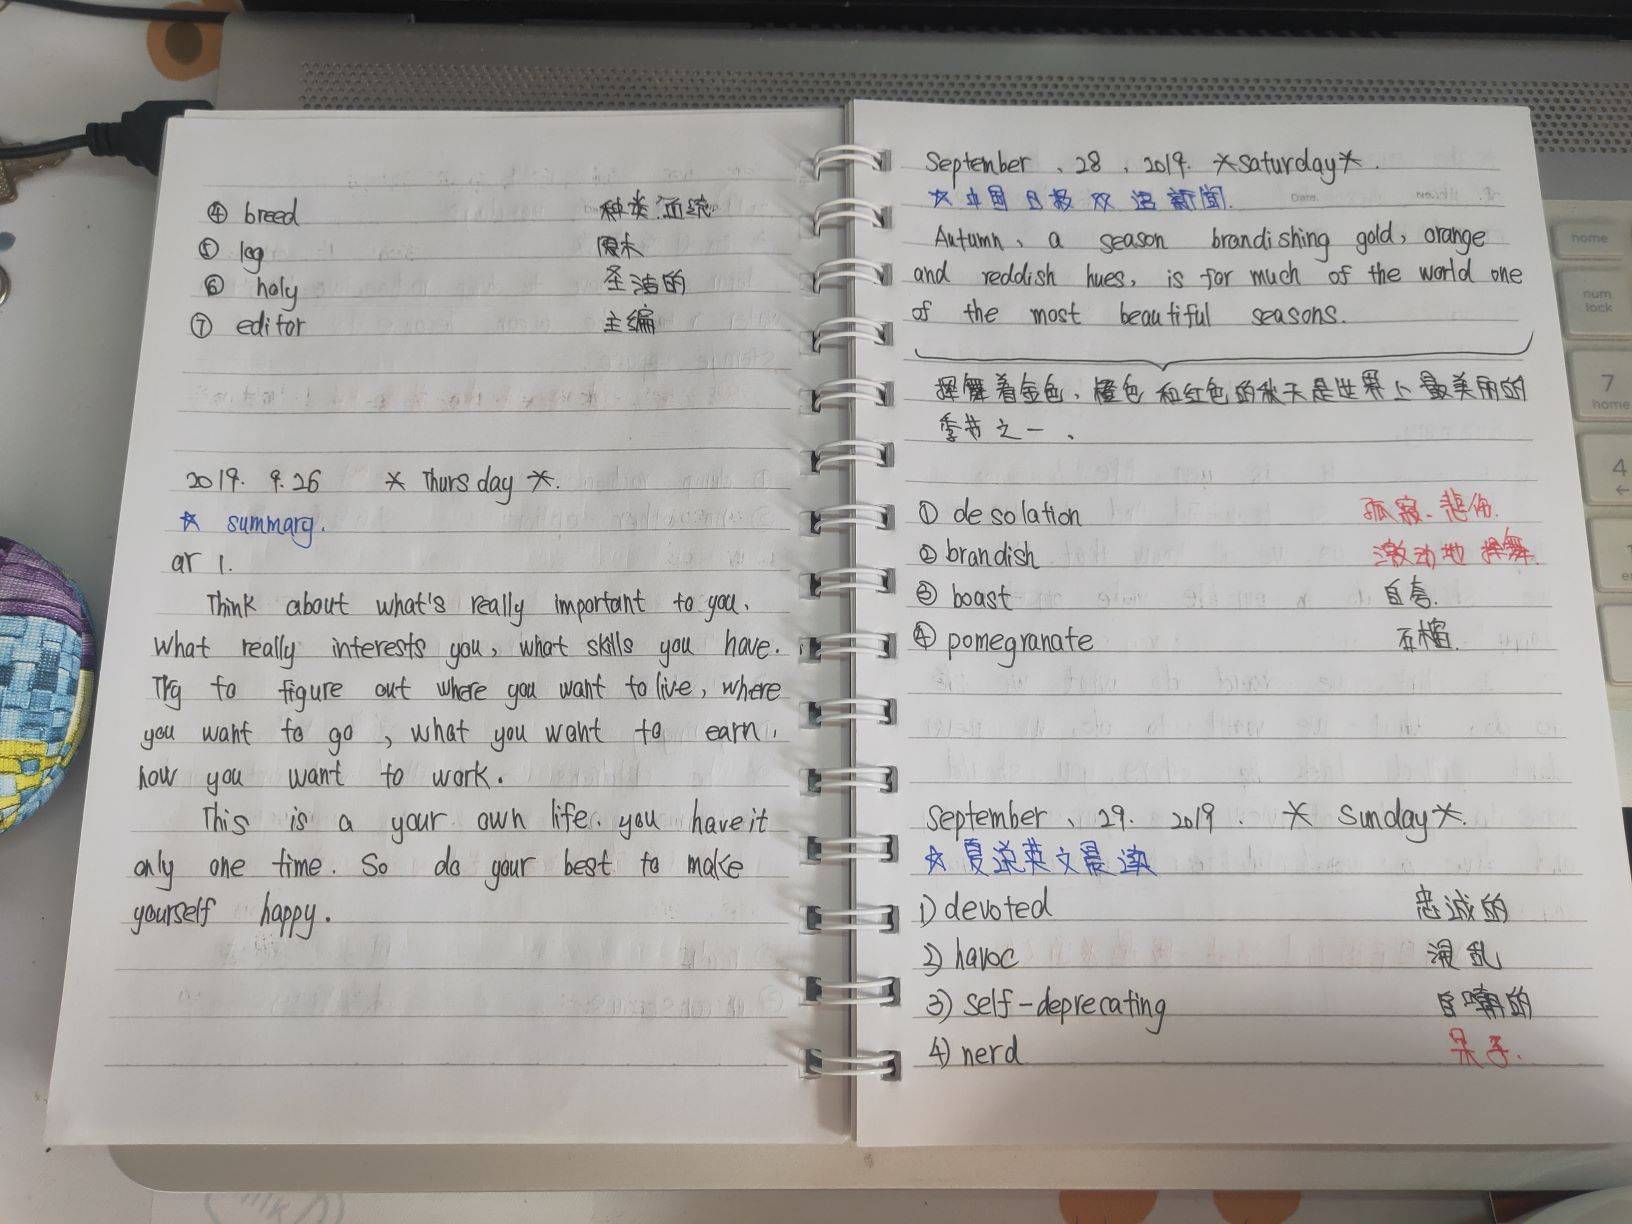 ④ breed 种类.血统
⑤ log 原木
⑥ holy 圣洁的
⑦ editor 主编
2019. 9.26 * Thursday *.
☆ summary.
ar 1.
Think about what's really important to you.
What really interests you, what skills you have.
Try to figure out where you want to live, where
you want to go, what you want to earn,
how you want to work.
This is a your own life. you have it
only one time. So do your best to make
yourself happy.
September、28、2019. *saturday*.
☆中国日报双语新闻.
Autumn、a season brandishing gold, orange
and reddish hues, is for much of the world one
of the most beautiful seasons.
挥舞着金色、橙色和红色的秋天是世界上最美丽的
季节之一、
① desolation 孤寂、悲伤.
② brandish 激动地挥舞.
③ boast 自夸.
④ pomegranate 石榴.
September、29. 2019. * Sunday*.
☆夏说英文晨读
1) devoted 忠诚的
2) havoc 混乱
3) self-deprecating 自嘲的
4) nerd 呆子.
home
num lock
7
home
4
←
1